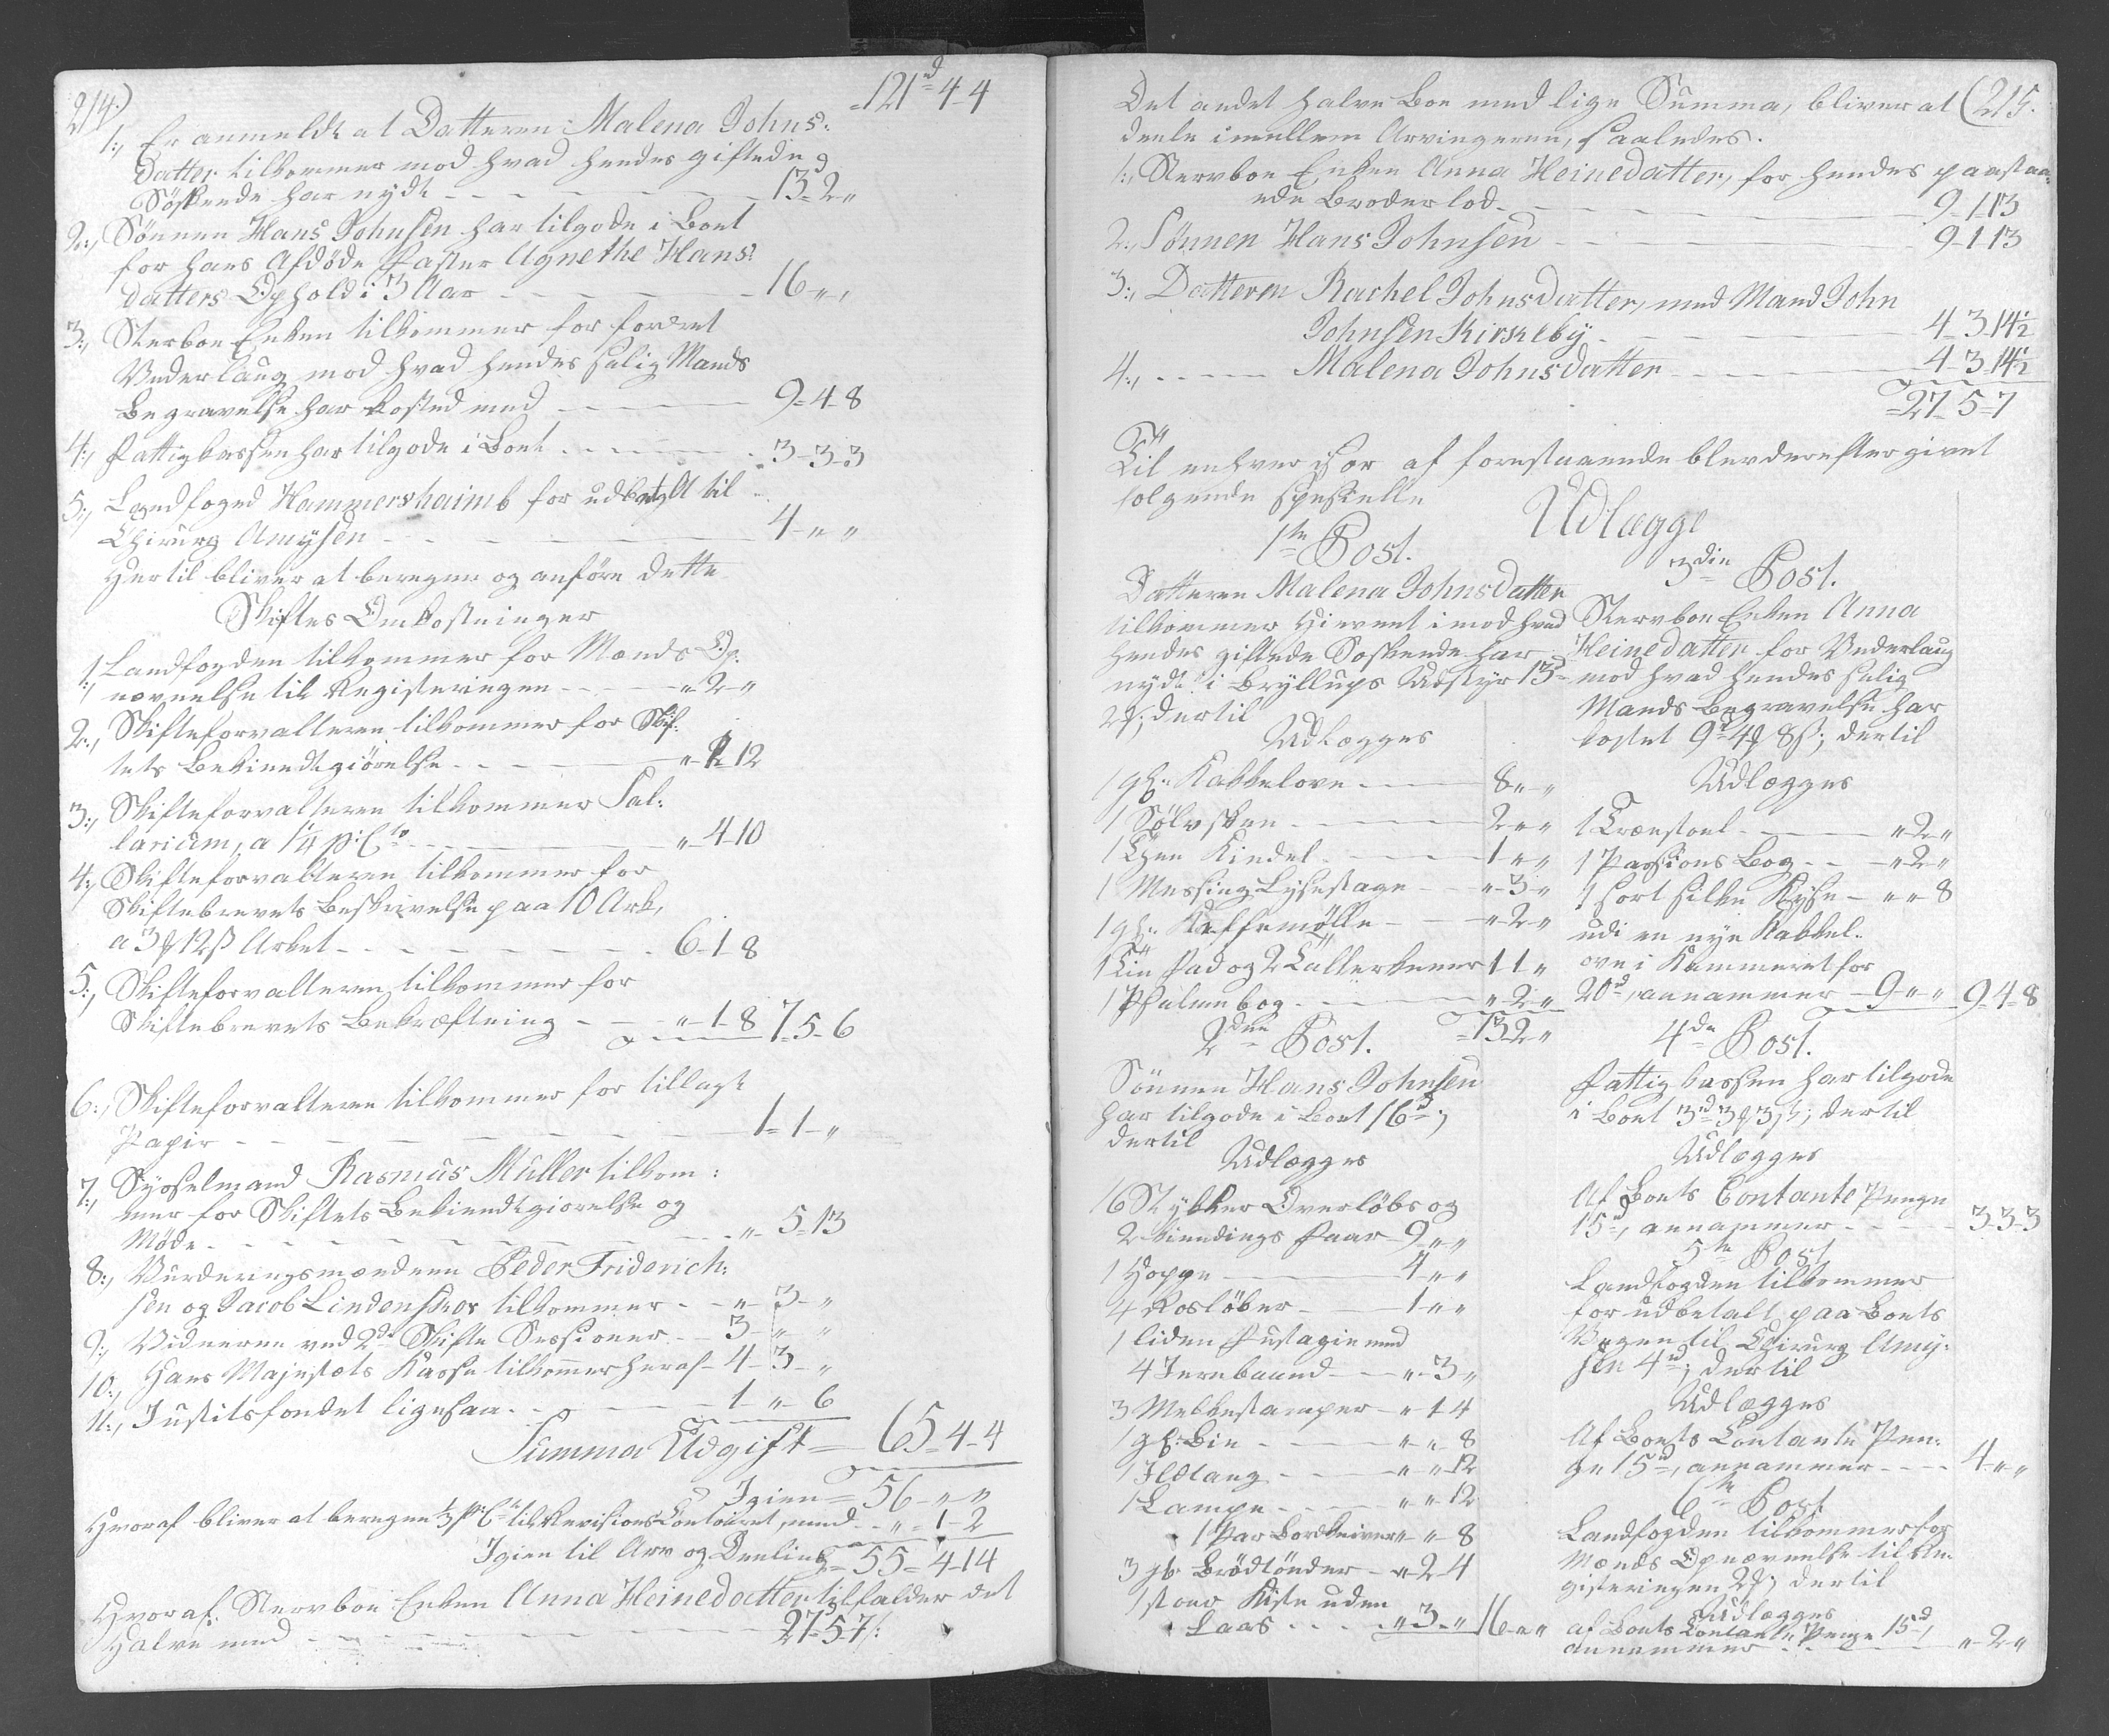 214.)
121d 4-4
1., Er anmeldt at Datteren Malena Johns-
datter tilkommer mod hvad hendes giftede
Söskende har nydt - - - 13d 2 "
2., Sönnen Hans Johnsen har tilgode i Boet
for hans Afdöde Faster Agnethe Hans-
datters Ophold i 3 Aar - - - 16 " "
3., Sterboe Enken tilkommer for fordret
Vederlaug mod hvad hendes salig Mands
Begravelse har kosted med - - - 9-4-8
4., Fattigkassen har tilgode i Boet - - - 3-3-3
5., Landfoged Hammershaimb for udbetalt til
Chirurg Amysen - - - 4 " "
Hertil bliver at beregne og anföre dette
Skiftes Omkostninger
1., Landfogden tilkommer for Mænds Op-
nævnelse til Registeringen - - - " 2 "
2., Skifteforvalteren tilkommer for Skif-
tets Bekiendtgiörelse - - - " 1 12
3., Skifteforvalteren tilkommer Sal-
larium, a 1/4 p:Cto - - - " 4-10
4., Skifteforvalteren tilkommer for
Skiftebrevets Beskrivelse paa 10 Ark,
a 3 12ß Arket - - - 6-1-8
5., Skifteforvalteren tilkommer for
Skiftebrevets Bekræftning - - - " 1-8 7-5-6
6., Skifteforvalteren tilkommer for tillagt
Papir - - - 1-1-"
7., Sysselmand Rasmus Müller tilkom-
mer for Skiftets Bekiendtgiörelse og
Möde - - - " 5-13
8., Vurderingsmændene Peder Friderich-
sen og Jacob Lindenskov tilkommer - - " 3-"
9., Vidnerne ved 2de Skifte Sessioner - - 3 " "
10., Hans Majestæts Kasse tilkommer heraf - 4-3-"
11., Justitsfondet ligesaa - - - 1 " 6
Summa Udgift = 65-4-4
Igien = 56 " "
Hvoraf bliver at beregne 1/3 p:Ct til Revisions Contoiret, med - " 1-2
Igien til Arv og Deeling = 55-4-14
Hvoraf Stervboe Enken Anna Heinedatter tilfalder det
Halve med - - - 27-5-7
(215.
Det andet halve Boe med lige Summa, bliver at
deele imellem Arvingerne, saaledes.
1., Stervboe Enken Anna Heinedatter, for hendes paastaa-
ede Broderlod - - - 9-1-13
2., Sönnen Hans Johnsen - - - 9-1-13
3., Datteren Rachel Johnsdatter, med Mand John
Johnsen Kirkeby - - - 4-3-14½
4., - - - Malena Johnsdatter - - - 4-3-14½
=27-5-7
Til enhver især af forestaaende blev derefter givet
fölgende specielle
Udlægge
1ste Post.
Datteren Malena Johnsdatter
tilkommer Hierent imod hvad
Hendes giftede Söskende har
nydt i Bryllups Udstyr 13d
2 ; dertil
Udlægges
1 gl: Kakkelovn - - - 8 " "
1 Sölvskee - - - 2 " "
1 Thee Kiedel - - - 1 " "
1 Messing Lysestage - - " 3 "
1 gl: Kaffemölle - - " 2 "
1 Tin Fad og 2 Tallerkener 1 1 "
1 Psalmebog - - - " 2 "
=13-2 "
2den Post.
Sönnen Hans Johnsen
har tilgode i Boet 16d;
dertil
Udlægges
16 Stykker Overlöbs og
2 kiendings Faar - 9 " "
1 Hoppe - - - 4 " "
4 Rosløber - - - 1 " "
1 liden Fustagie med
4 Jernbaand - - " 3 "
3 Melkestamper - " 1-4
1 gl: Bie - - - " " 8
1 Ildtang - - " " 12
1 Lampe - - - " " 12
1 Par Bordkniver " " 8
3 gl: Brödtönder - " 2-4
1 stoer Kiste uden
Laas - - - " 3 " 16 " "
3die Post.
Stervboe Enken Anna
Heinedatter for Vederlaug
mod hvad hendes salig
Mands Begravelse har
kostet 9d 4 8ß; dertil
Udlægges
1 Lænstoel - - - " 2 "
1 Passions Bog - - " 2 "
1 sort silke Kyse - " " 8
udi en nye Kakkel-
ovn i Kammeret for
20d, annammer - 9 " " 9-4-8
4de Post.
Fattigkassen har tilgode
i Boet 3d 3 3ß; dertil
Udlægges
Af Boets Contante Penge
15d, annammer - - - 3-3-3
5te Post
Landfogden tilkommer
for udbetalt paa Boets
Vegne til Chirurg Amy-
sen 4d; dertil
Udlægges
Af Boets Contante Pen-
ge 15d, annammer - - - 4 " "
6te Post
Landfogden tilkommer for
Mænds Opnævnelse til Re-
gisteringen 2 ; dertil
Udlægges
af Boets Contante Penge 15d,
annammer - - - " 2 "